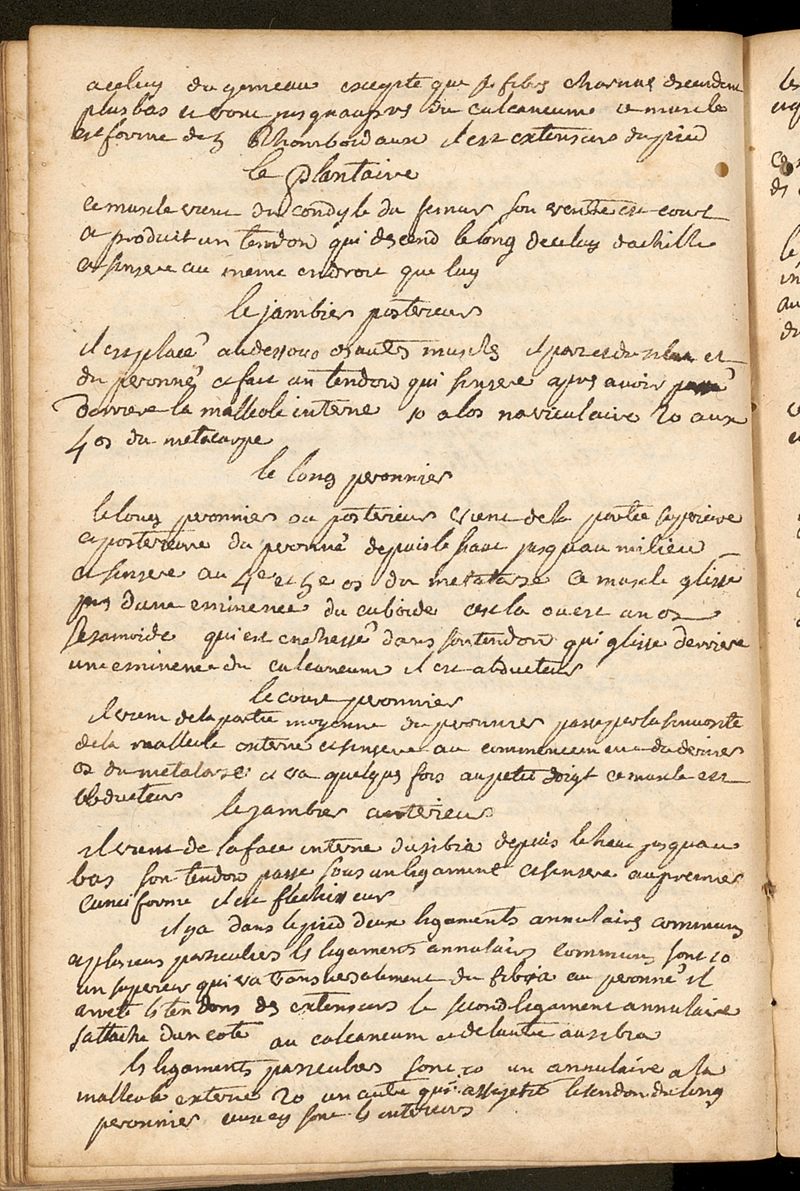 a celuy du gemeau excepté que ses fibres charnues descendent
plus bas et vont jusqu'aupres du calcaneum ce muscle
est formé de Rhomboidaux il est extenseur du pied
le Plantaire
ce muscle vient du condyle du femur son ventre est court
et produit un tendon qui descend le long de celuy d'achille
et s'insere au meme endroit que luy
le jambier posterieur
il est placé au dessous muscles il part du et
du peronné et fait un tendon qui s'insere apres avoir passé
derriere la malleole interne 1o a l'os naviculaire 2o aux
4 os du metacarpe
le long peronnier
le long peronnier ou posterieur vient de la partie superieure
et posterieure du peronné depuis le haut jusqu'au milieu
et s'insere au 4e et 5e os du metatarse ce muscle glisse
pres d'une eminence du cuboide c'est la ou est un os
sesamoide qui est enchassé dans son tendon qui glisse derriere
une eminence du calcaneum il est abducteur
le court peronnier
il vient de la partie moyenne du peronnier passe par la sinuosité
de la malleole externe et s'insere au commencement du dernier
os du metatarse et va quelques fois au petit doigt ce muscle est
abducteur
le jambier anterieur
il vient de la face interne du tibia depuis le haut jusqu'au
bas son tendon passe sous un ligament et s'insere au premier
cuneiforme il est flechisseur
il y a dans le pied deux ligaments annulaires communs
et plusieurs particuliers les ligaments annulaires communs sont 1o
un superieur qui va transversalement du tibia au peronné il
arrete les tendons des extenseurs le second ligament annulaire
s'attache d'un coté au calcaneum et de l'autre au tibia
les ligaments particuliers sont 1o un annulaire a la
malleole externe 2o un autre qui assujetit le tendon du long
peronnier ceux cy sont les interieurs